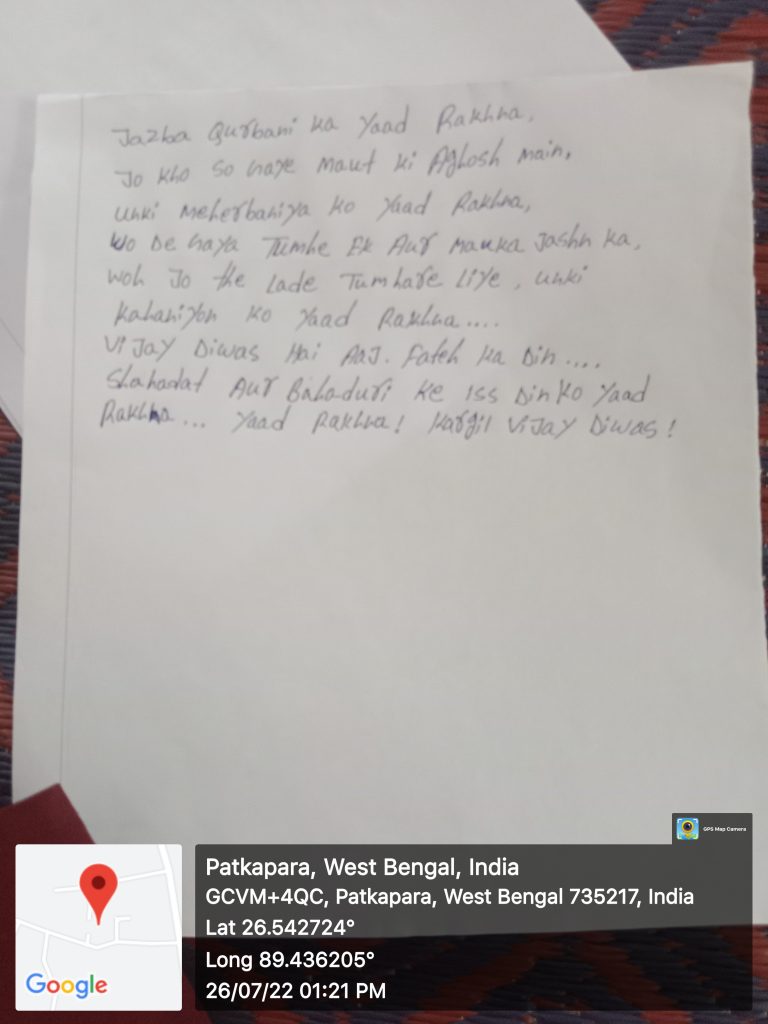 Jazba Qurbani ka Yaad Rakhna,
Jo Kho So Gaye Maut Ki Aghosh Main,
Unki Meherbaniya Ko Yaad Rakhna,
Wo De Gaya Tumhe Ek Aur Mauka Jashn Ka,
Woh Jo the Lade Tumhare Liye, Unki
Kahaniyon Ko Yaad Rakhna....
Vijay Diwas Hai Aaj. Fateh Ka Din....
Shahadat Aur Bahaduri Ke Iss Din Ko Yaad
Rakhna... Yaad Rakhna! Kargil Vijay Diwas!
GPS Map Camera
Patkapara, West Bengal, India
GCVM+4QC, Patkapara, West Bengal 735217, India
Lat 26.542724°
Long 89.436205°
26/07/22 01:21 PM
Google